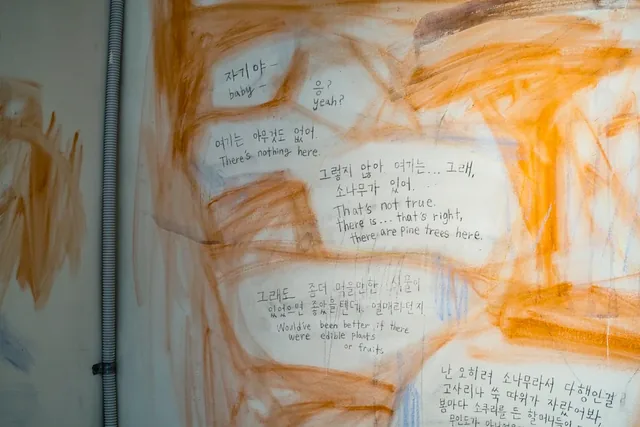 자기야 -
baby -
응?
yeah?
여기는 아무것도 없어.
There's nothing here.
그렇지 않아 여기는... 그래,
소나무가 있어.
That's not true.
there is... that's right,
there are pine trees here.
그래도 좀더 먹을만한 식물이
있었으면 좋았을텐데. 열매라던지
Would've been better if there
were edible plants
or fruits.
난 오히려 소나무라서 다행인걸
고사리나 쑥 따위가 자랐어봐,
봄마다 소쿠리를 든 할머니들이